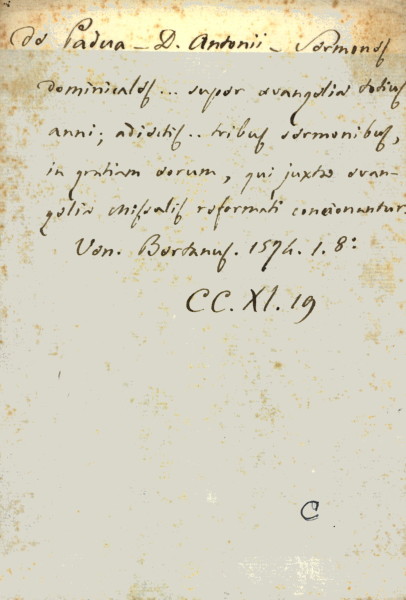 de Padua - D. Antonii - Sermones
dominicales ... super evangelia totius
anni; adiectis .. tribus sermonibus,
in gratiam eorum, qui juxta evan-
gelia Missalis reformati concionantur.
Ven. Bertanus. 1574. 1. 8:
CC. XI. 19
C